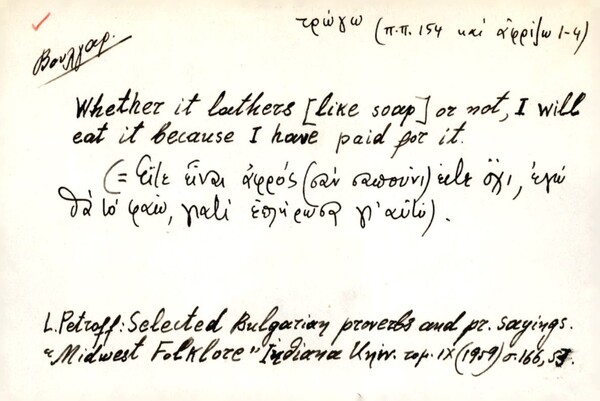 τρώγω (π.π. 154 καὶ ἀφρίζω 1-4)
Βουλγαρ.
Whether it lathers [like soap] or not, I will
eat it because I have paid for it.
(= Εἴτε εἶναι ἀφρός (σὰν σαπούνι) εἴτε ὄχι, ἐγὼ
θὰ τὸ φάω, γιατὶ ἐπλήρωσα γι' αὐτό).
L. Petroff: Selected Bulgarian proverbs and pr. sayings.
"Midwest Folklore" Indiana Univ. τομ. IX (1959) σ. 166,